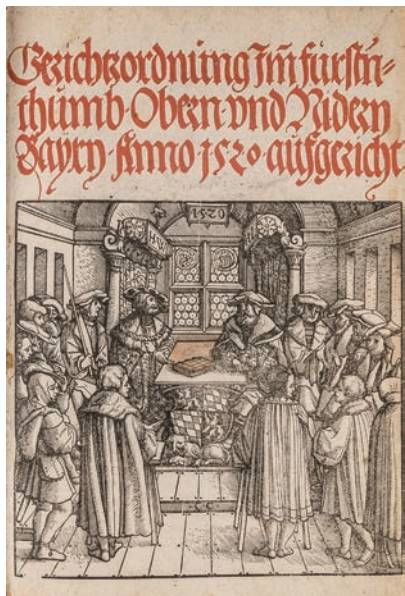 Gerichtzordnung Im fürstn-
thumb Obern vnd Nidern
Bayrn Anno 1520 aufgericht
1520